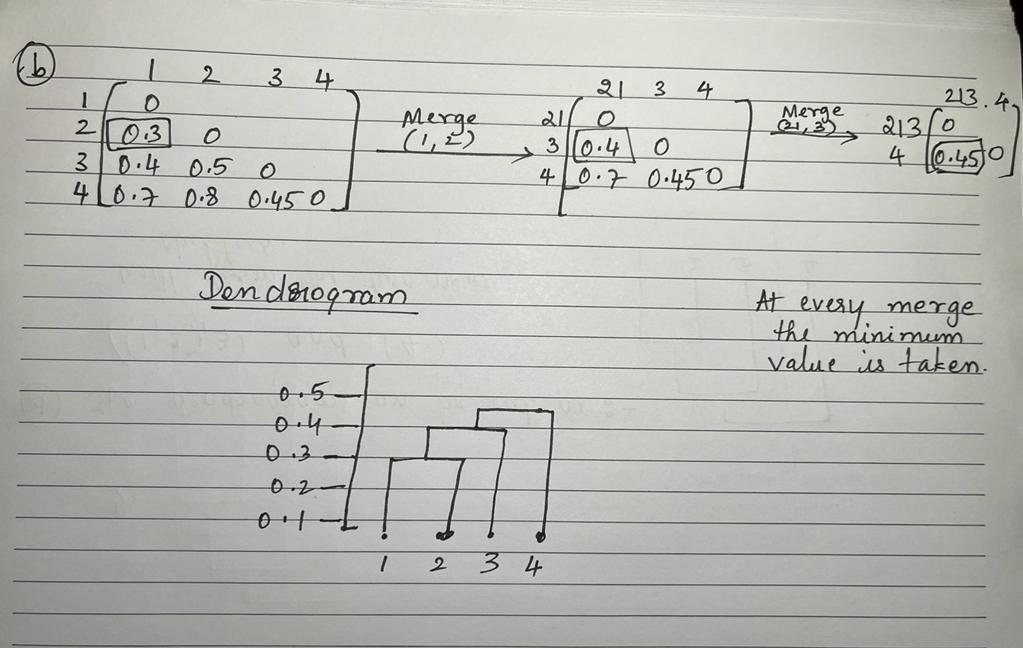 (b)
1 2 3 4
1 0
2 0.3 0
3 0.4 0.5 0
4 0.7 0.8 0.45 0
Merge
(1, 2)
21 3 4
21 0
3 0.4 0
4 0.7 0.45 0
Merge
(21, 3)
213 . 4
213 0
4 0.45 0
Dendrogram
At every merge
the minimum
value is taken.
0.5
0.4
0.3
0.2
0.1
1 2 3 4